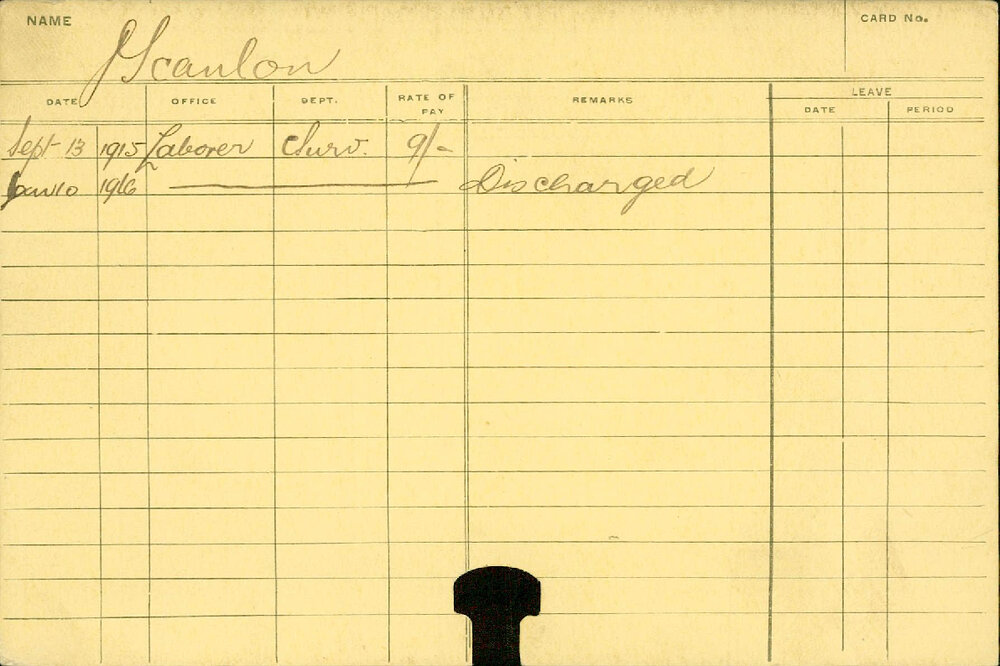 NAME J Scanlon CARD No.
DATE OFFICE DEPT. RATE OF PAY REMARKS LEAVE
DATE PERIOD
Sept 13 1915 Laborer Surv. 9/-
Jan 10 1916 Discharged